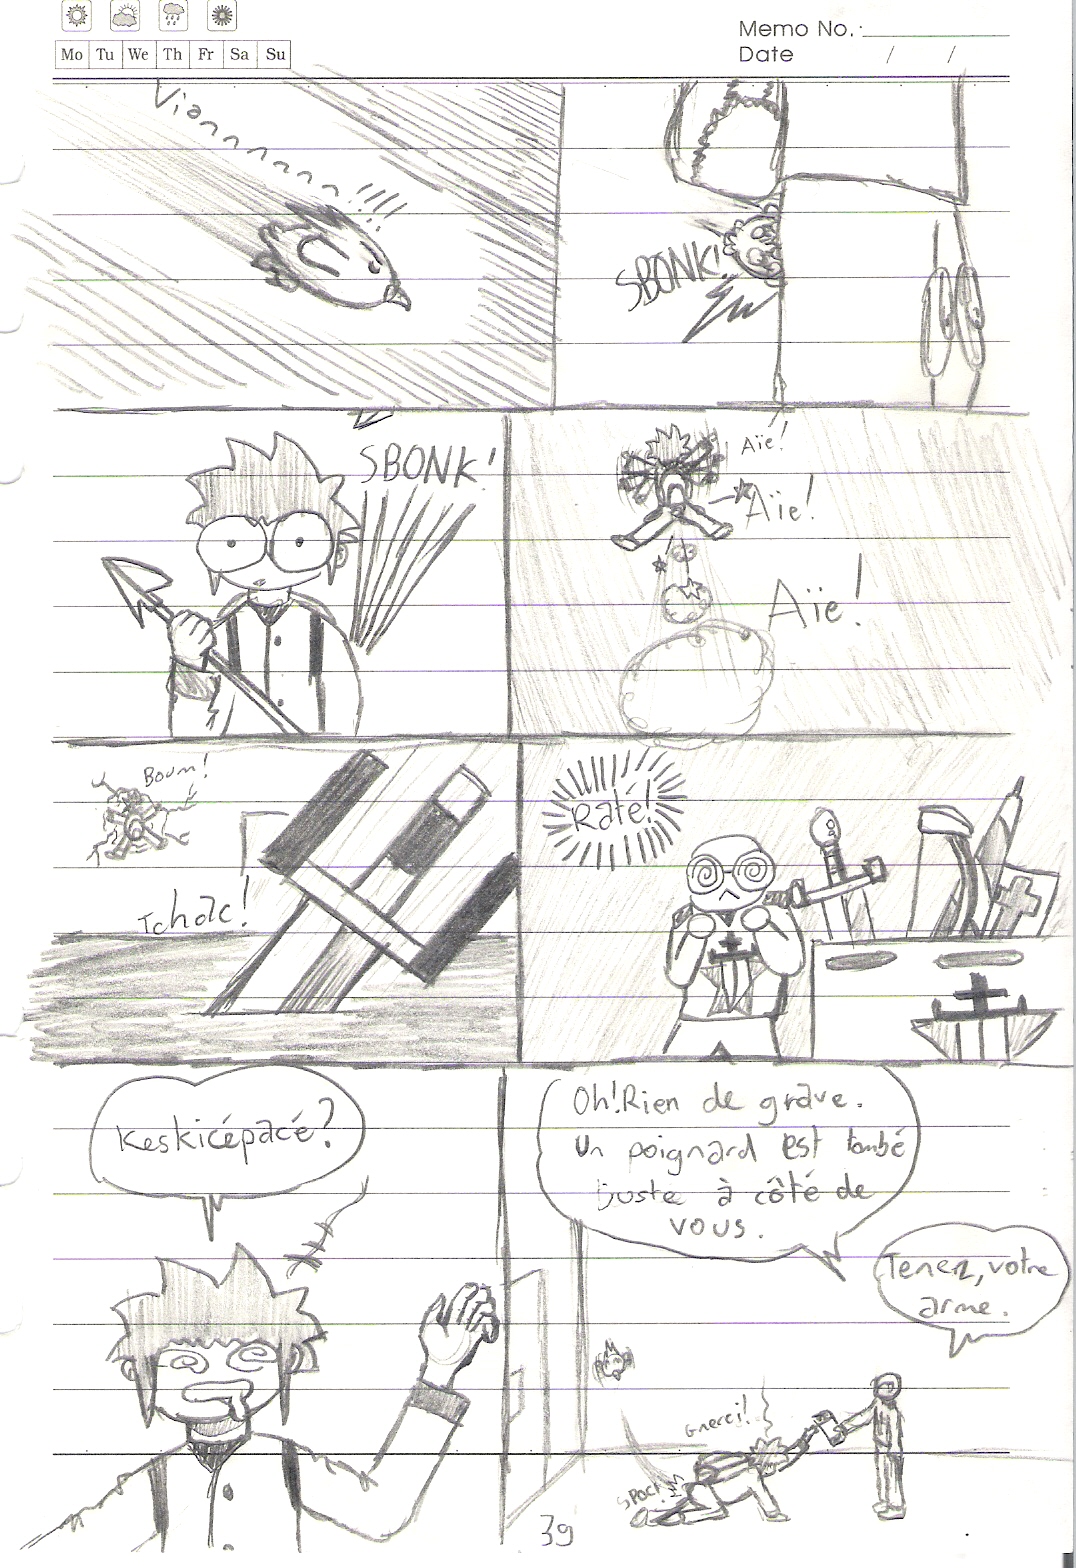 Memo No.:
Mo Tu We Th Fr Sa Su
Date / /
Viannnnnnn!!!!
SBONK!
SBONK!
Aïe!
Aïe!
Aïe!
Boum!
Tchac!
Raté!
Keskicépacé?
Oh! Rien de grave.
Un poignard est tombé
juste à côté de
vous.
Tenez, votre
arme.
Gnerci!
SPOC!
39